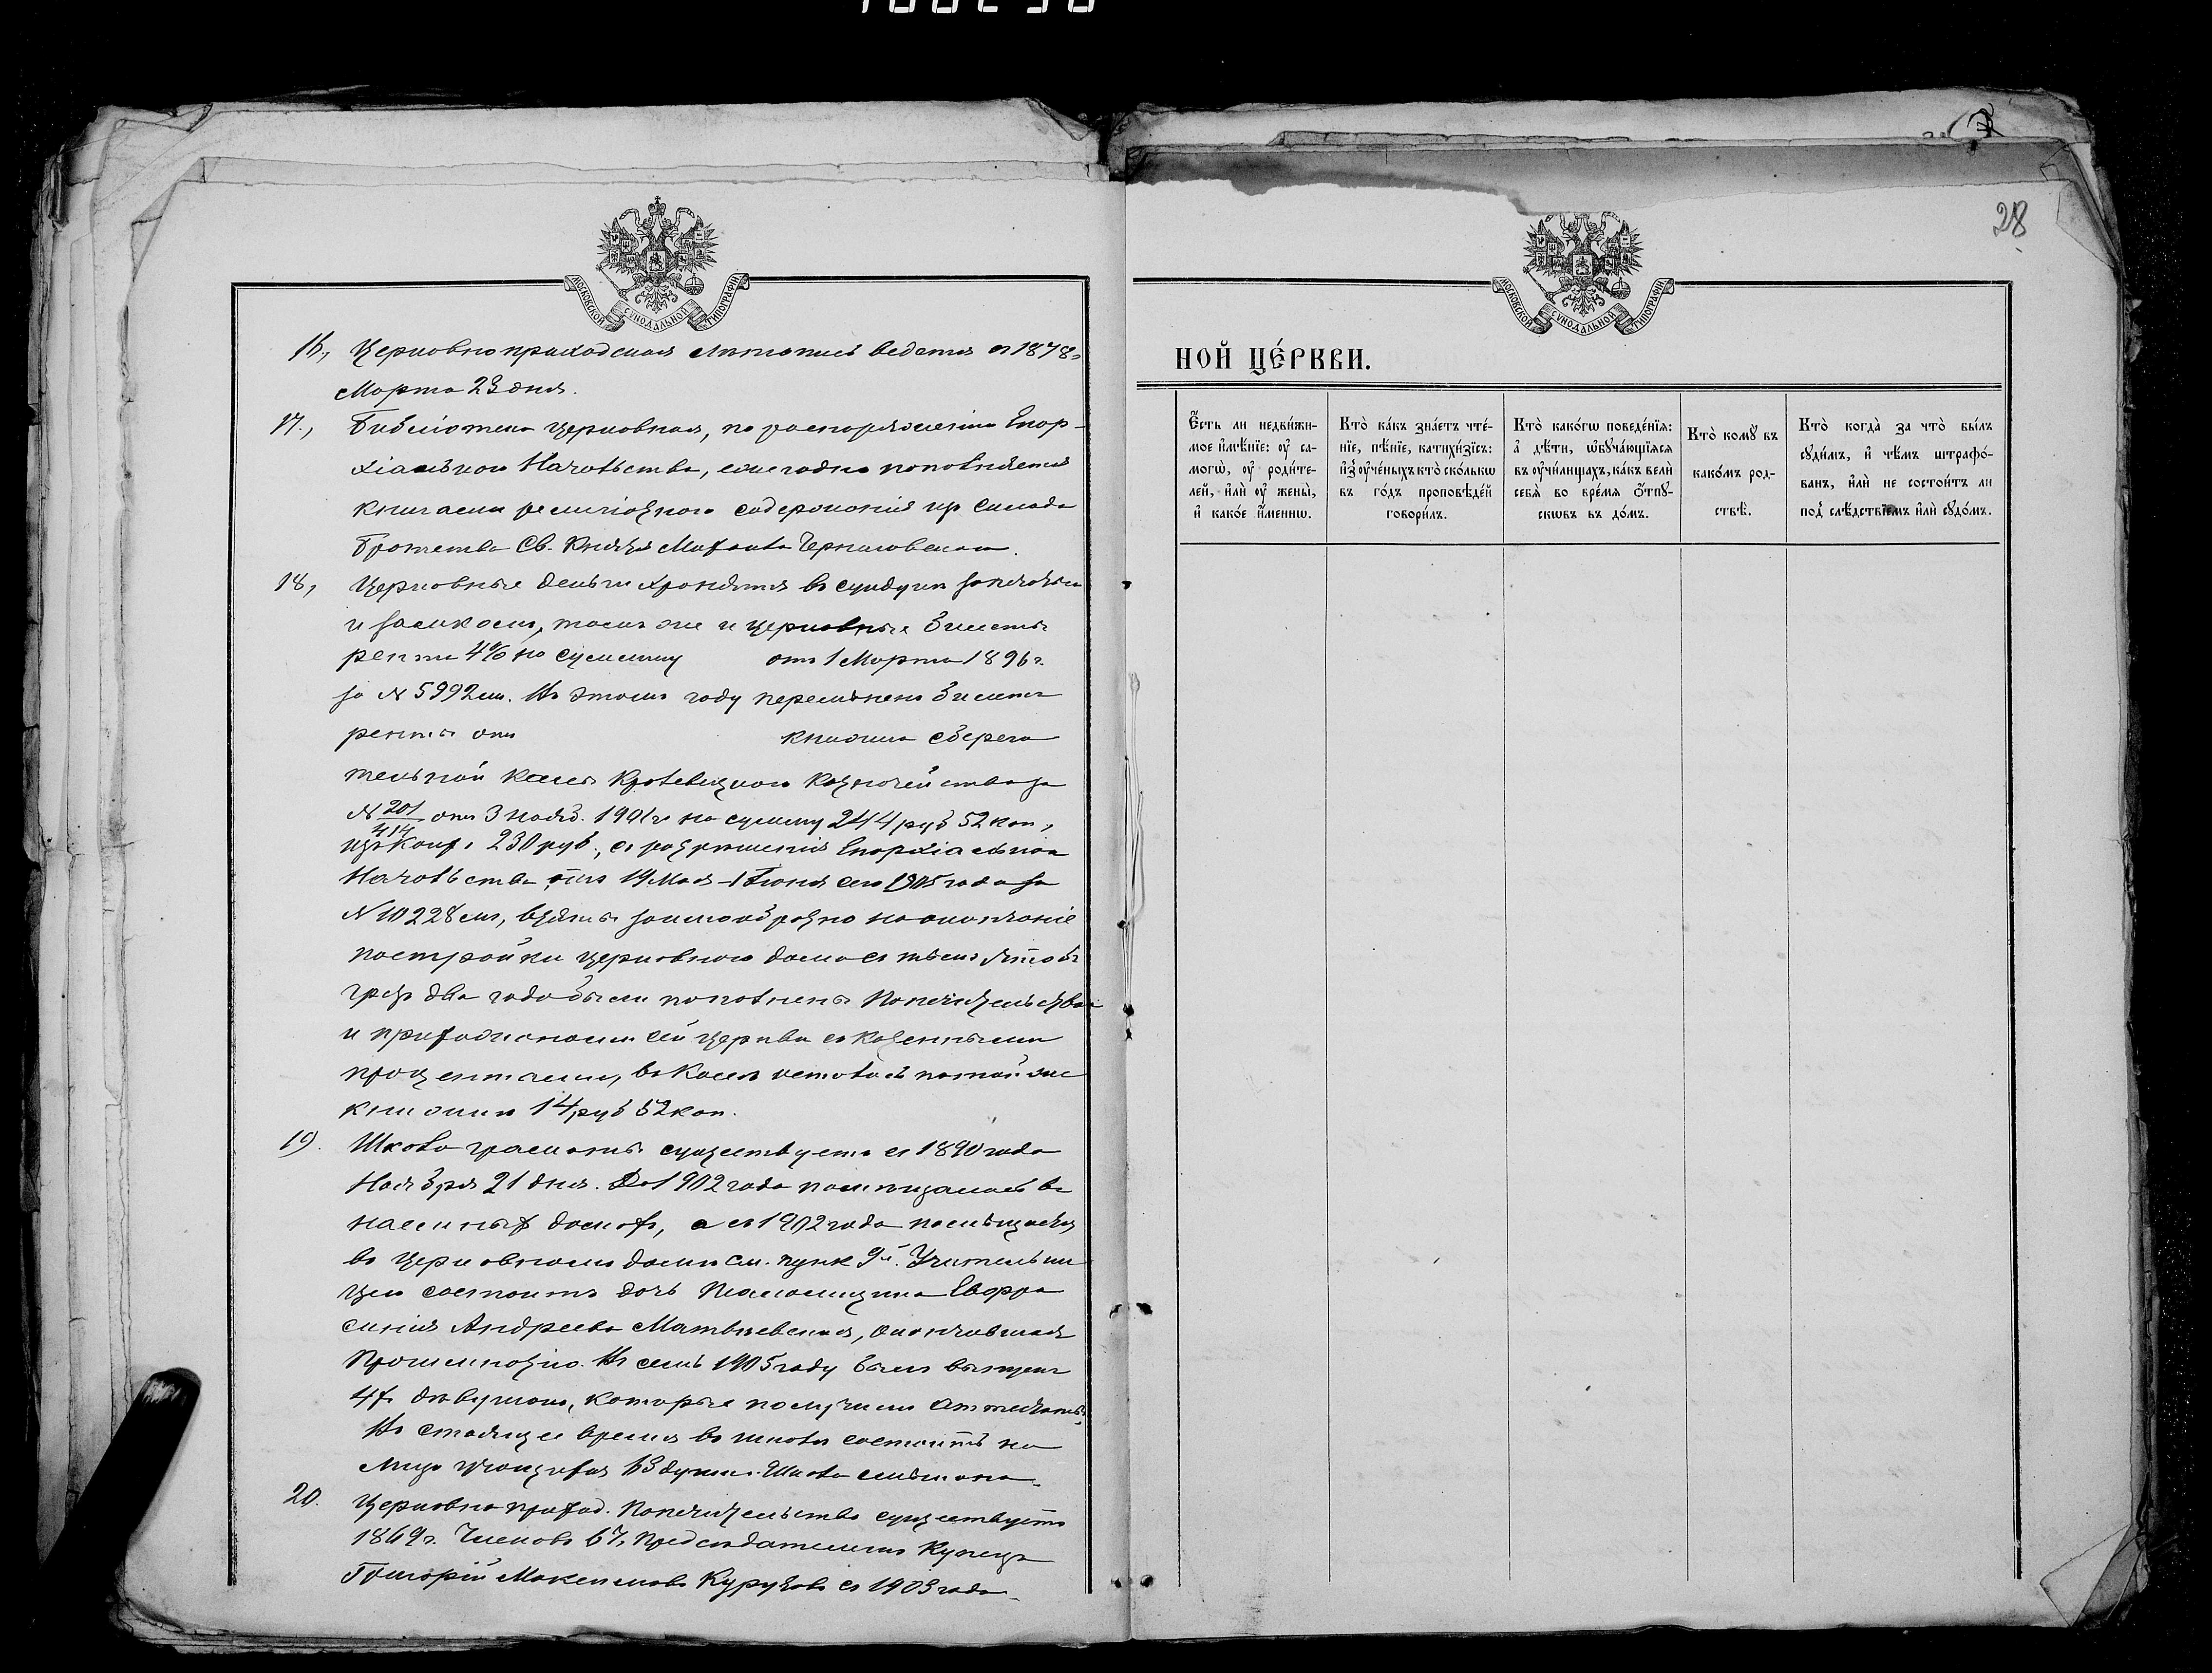 МОСКОВСКОЙ СѴНОДАЛЬНОЙ ТИПОГРАФІИ
16, Церковно приходская Лѣтопись ведется съ 1878
Марта 23 дня.
17., Библіотека церковная, по распоряженію Епар-
хіальнаго Начальства, ежегодно пополняется
книгами религіознаго содержанія изъ склада
Братства Св. Князя Михаила Черниговскаго.
18, Церковныя деньги хранятся въ сундукѣ за печатью
и замкомъ, тамъ же и церковные билеты
ренты 4% на сумму отъ 1 Марта 1896 г.
за № 5992 мъ. Въ этомъ году перемѣнены билеты
ренты отъ книжка сберега
тельной кассы Кролевецкаго Казначейства за
№ 201/414 отъ 3 нояб. 1901 г. на сумму 244 руб 52 коп.,
изъ коихъ 230 руб., съ разрѣшенія Епархіальнаго
Начальства отъ 19 Мая - 1 Іюня сего 1905 года за
№ 10228 мъ, взяты заимообразно на окончаніе
постройки церковнаго дома съ тѣмъ чтобъ
чрезъ два года были пополнены Попечительствомъ
и прихожанами сей церкви съ казенными
процентами, въ кассѣ осталось по той же
книжкѣ 14 руб 52 коп.
19). Школа грамоты существуетъ съ 1890 года
Ноября 21 дня. До 1902 года помѣщалась въ
наемныхъ домахъ, а съ 1902 года помѣщается
въ церковномъ домѣ см. пунк 9й. Учительни
цею состоитъ дочь Псаломщика Евфро
синія Андреева Матвѣевская, окончившая
Прогимназію. Въ семъ 1905 году былъ выпускъ
4х дѣвушекъ, которыя получили Аттестаты.
Въ стоящее время въ школѣ состоитъ на
лицо учащихся 63 души. Школа смѣшана.
20. Церковно приход. Попечительство существуетъ
1869 г. Членовъ 67, Предсѣдателемъ Купецъ
Григорій Максимовъ съ 1903 года.
28
МОСКОВСКОЙ СѴНОДАЛЬНОЙ ТИПОГРАФІИ
НОЙ ЦЕ́РКВИ.
Е҆́сть ли недви́жи-
мое и҆мѣ́нїе: ᲂу҆ са-
могѡ̀, ᲂу҆ роди́те-
лей, и҆лѝ ᲂу҆ жены̀,
и҆ како́е и҆́меннѡ.
Кто̀ ка́къ зна́етъ чте́-
нїе, пѣ́нїе, катихи́зїсъ:
и҆з̾ ᲂу҆че́ныхъ кто̀ ско́лькѡ
въ го́дъ проповѣ́дей
говори́лъ.
Кто̀ како́гѡ поведе́нїѧ:
а҆ дѣ́ти, ѡ҆бꙋча́ющїѧсѧ
въ ᲂу҆чи́лищахъ, ка́къ велѝ
себѧ̀ во вре́мѧ ѿпꙋ-
скѡвъ въ до́мъ.
Кто̀ комꙋ̀ въ
како́мъ род-
ствѣ̀.
Кто̀ когда̀ за что̀ бы́лъ
сꙋди́мъ, и҆ чѣ́мъ штрафо́-
ванъ, и҆лѝ не состои́тъ ли
под̾ слѣ́дствїемъ и҆лѝ сꙋдо́мъ.